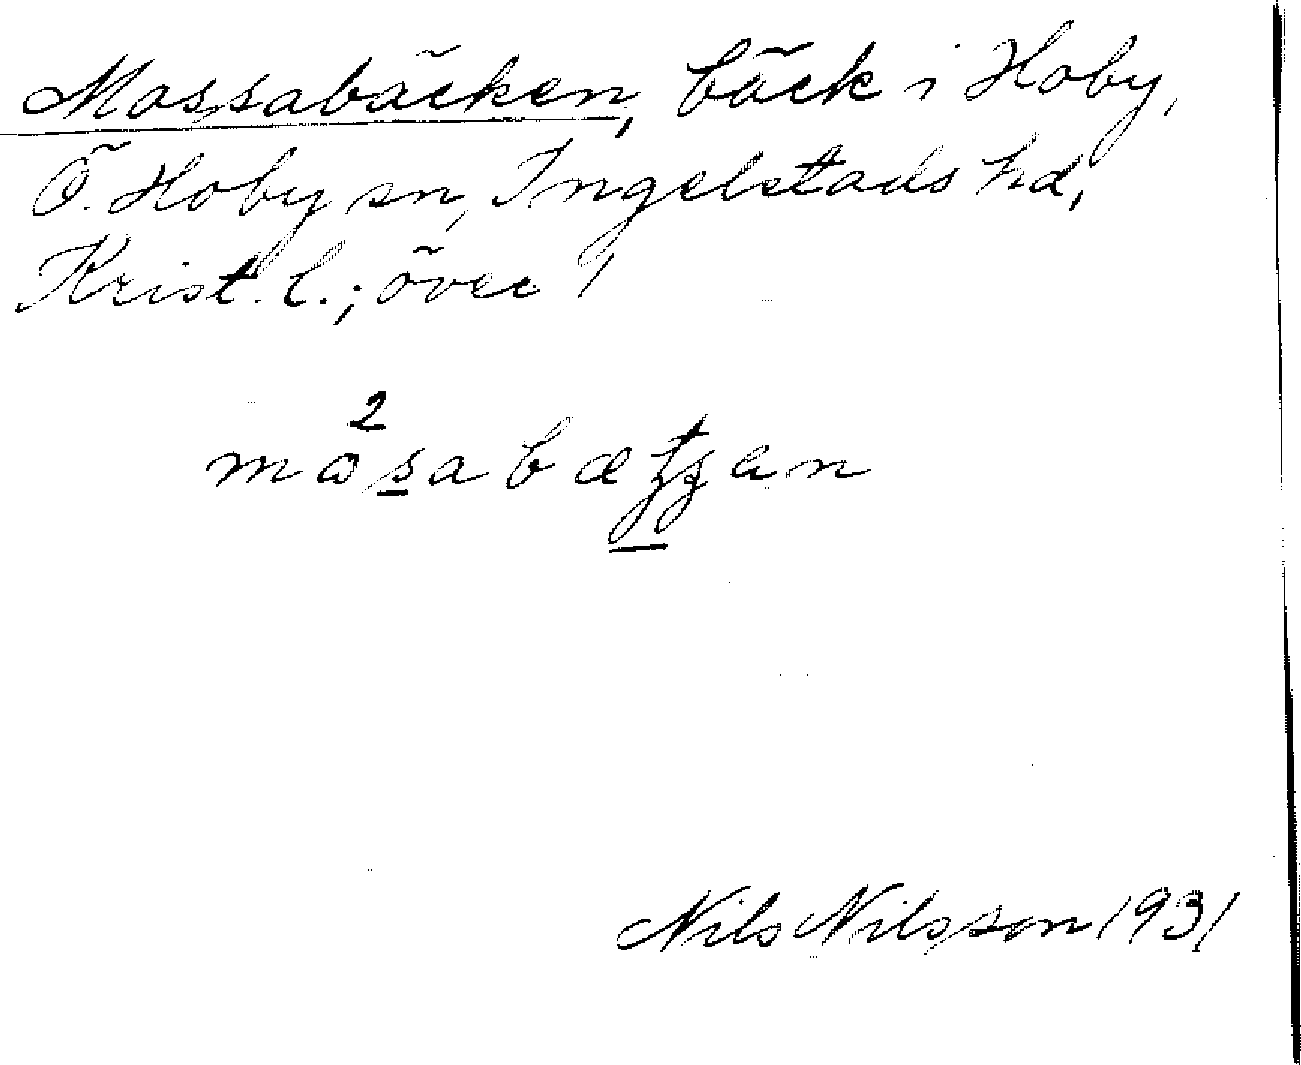 Mossabäcken, bäck i Hoby,
Ö. Hoby sn, Ingelstads hd,
Krist. l.; över 1
2
Nils Nilsson 1931